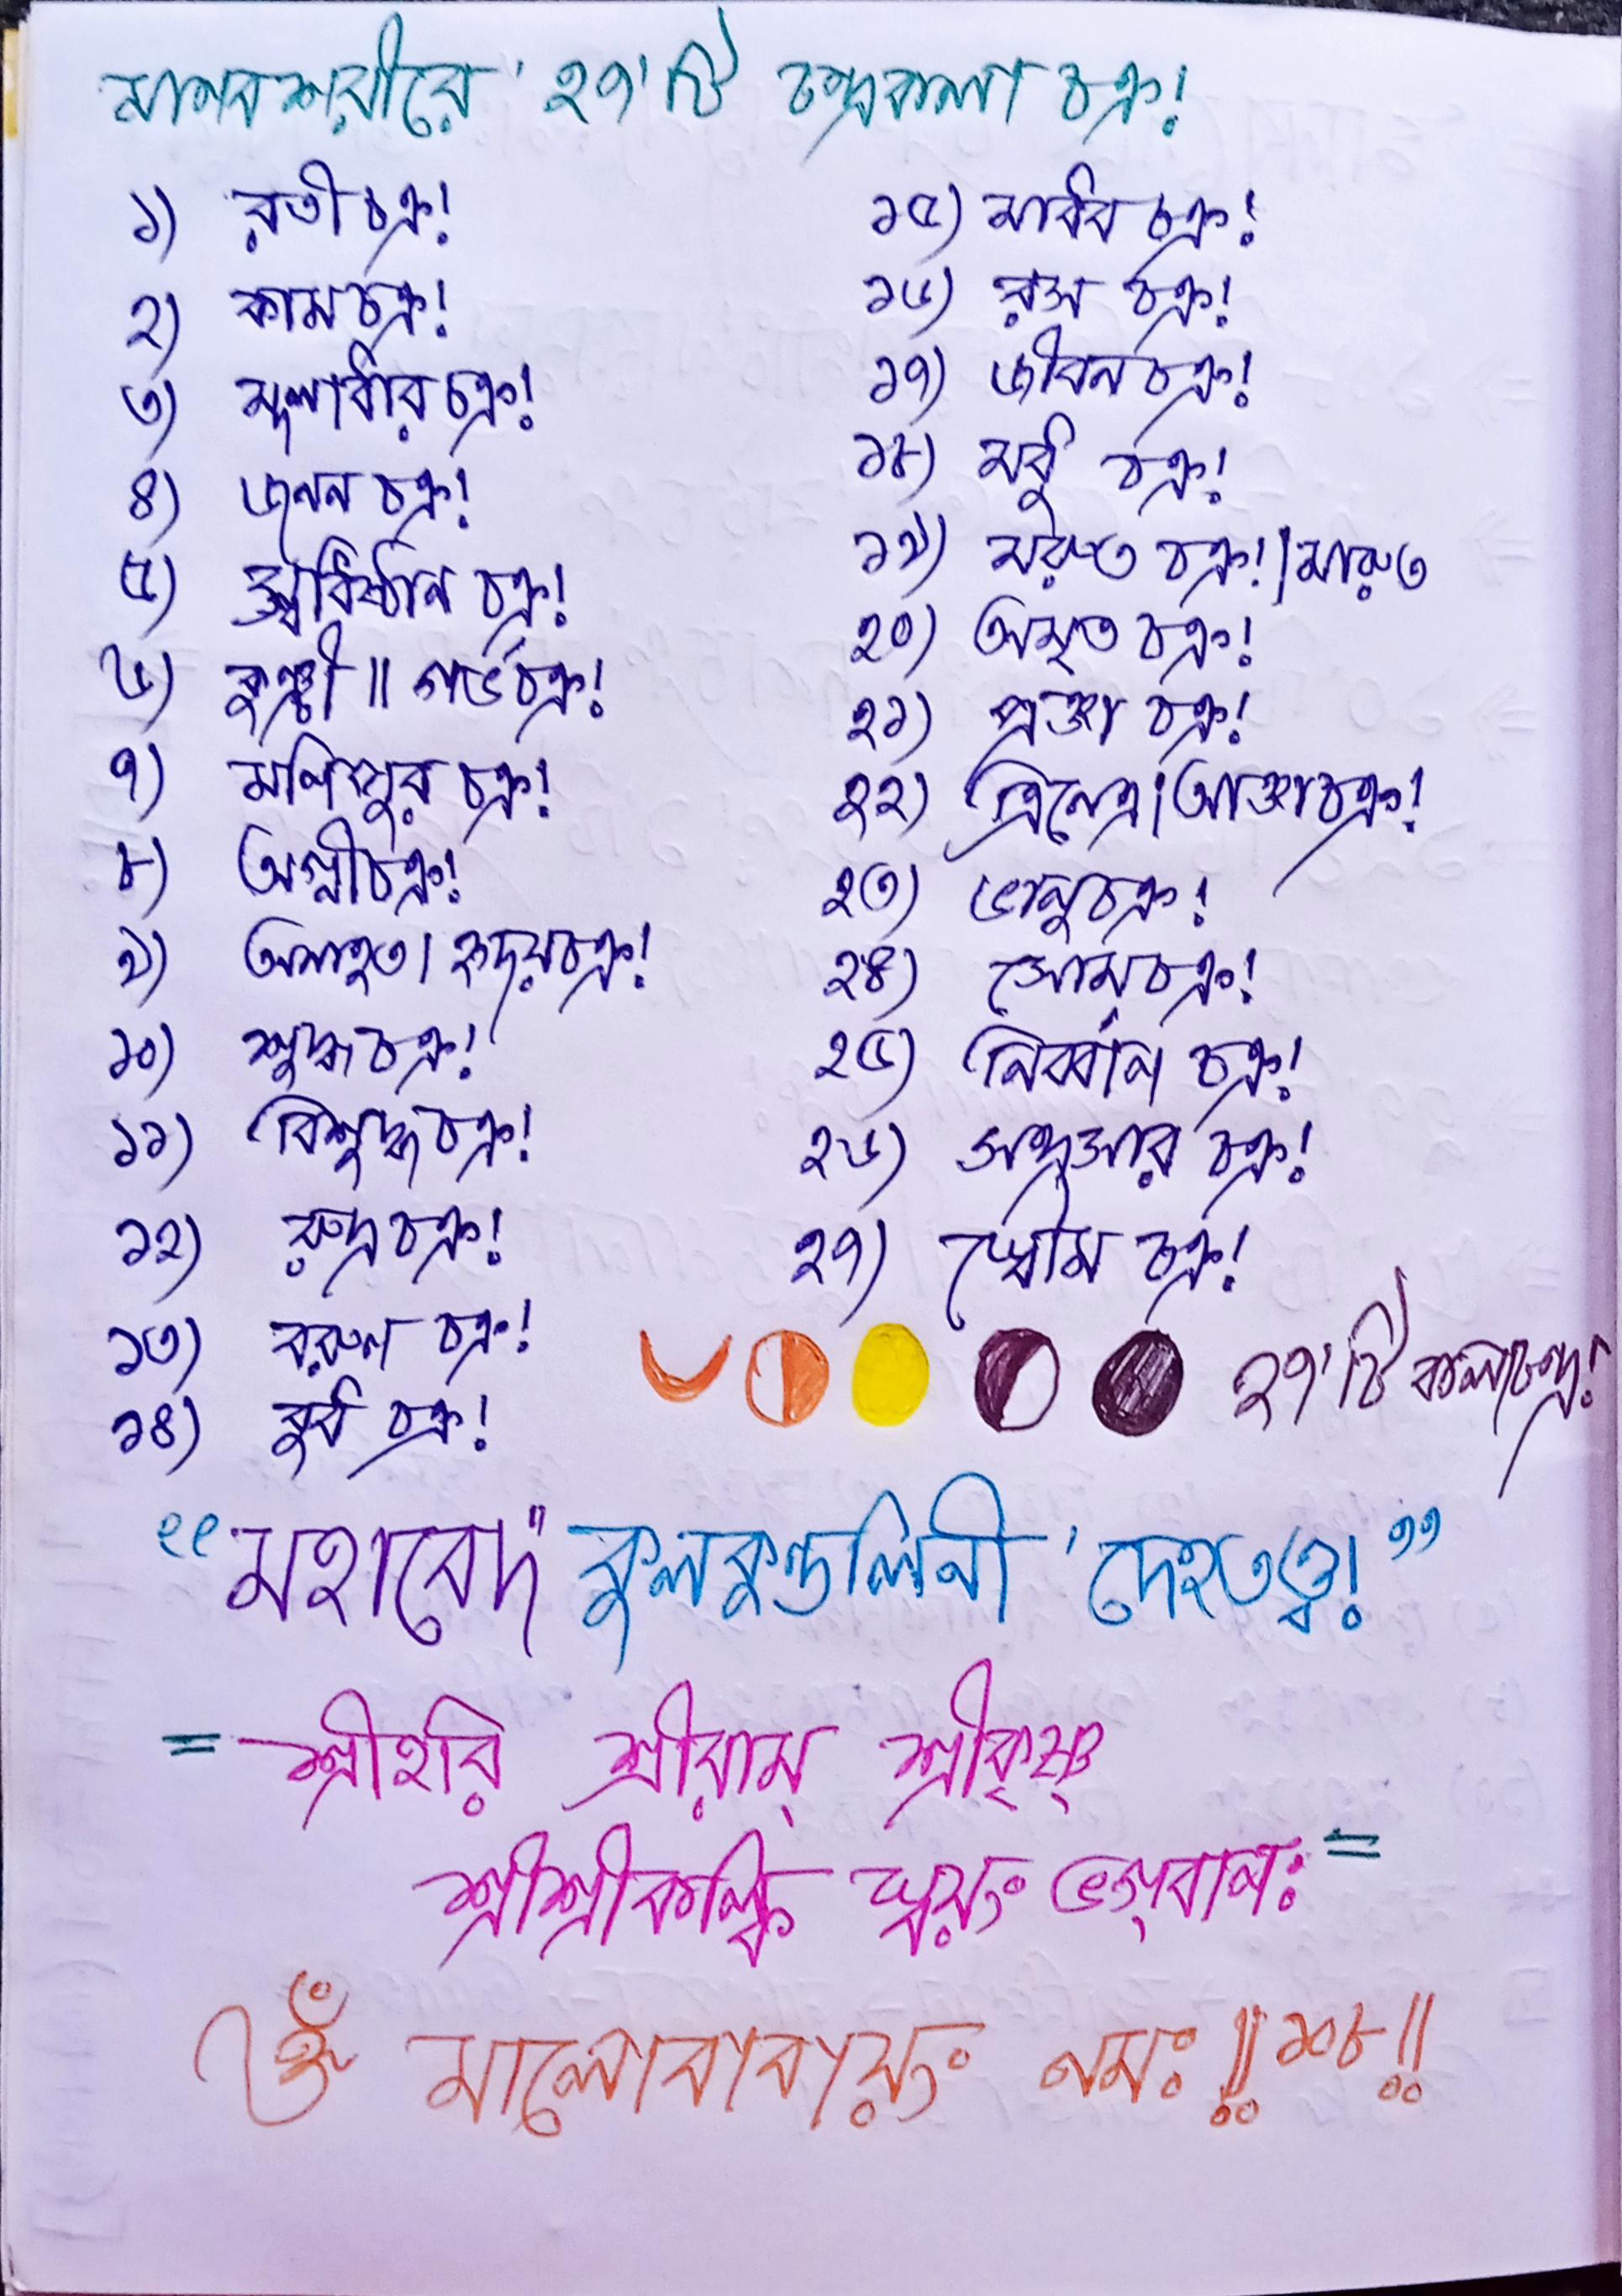 মানবশরীরে '২৭'টি চন্দ্রকলা চক্র!
১) রতীচক্র!
২) কামচক্র!
৩) মূলাধার চক্র!
৪) জনন চক্র!
৫) স্বাধিষ্ঠান চক্র!
৬) || গর্ভচক্র!
৭) মণিপুর চক্র!
৮) অগ্নীচক্র!
৯) অনাহত। হৃদয়চক্র!
১০) শুদ্ধচক্র!
১১) বিশুদ্ধচক্র!
১২) রুদ্রচক্র!
১৩) বরুণ চক্র!
১৪) বুধ চক্র!
১৫) মাধব চক্র!
১৬) রস চক্র!
১৭) জীবন চক্র!
১৮) মধু চক্র!
১৯) মরুত চক্র!/মারুত
২০) অমৃত চক্র!
২১) প্রজ্ঞা চক্র!
২২) ত্রিনেত্র।আজ্ঞাচক্র!
২৩) ভানুচক্র!
২৪) সোমচক্র!
২৫) নির্বাণ চক্র!
২৬) সহস্রার চক্র!
২৭) চক্র!
২৭'টি কলাচন্দ্র!
“মহাবেদ" কুলকুণ্ডলিনী 'দেহতত্ত্ব!”
= শ্রীহরি শ্রীরাম্ শ্রীকৃষ্ণ
শ্রীশ্রীকল্কি স্বয়ং ভগবানঃ =
ওঁ মালোবাবায়ং নমঃ!!১০৮!!